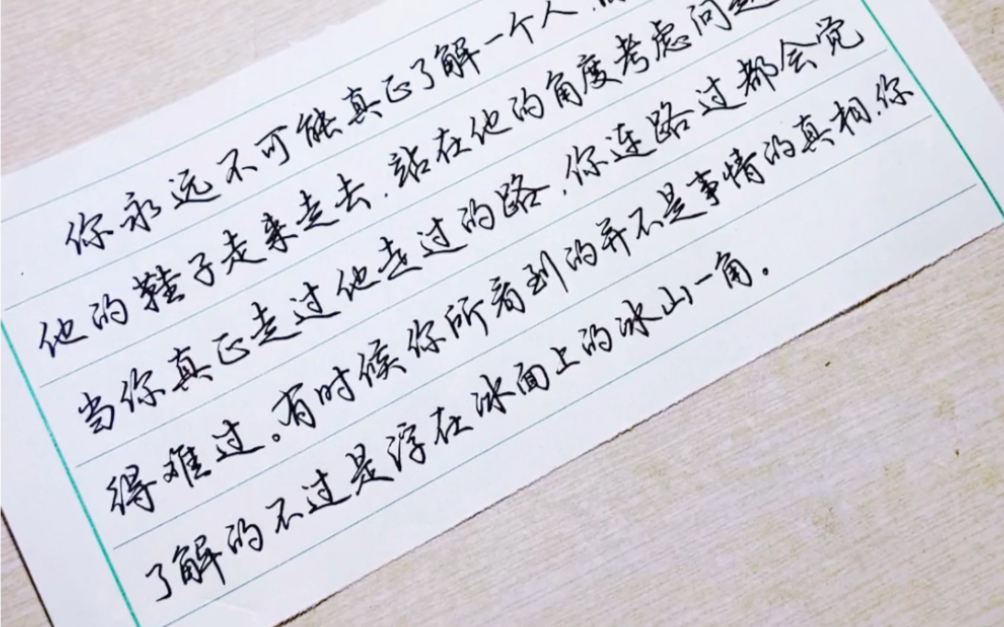 你永远不可能真正了解一个人,
他的鞋子走来走去,站在他的角度考虑问题
当你真正走过他走过的路,你连路过都会觉
得难过。有时候你所看到的并不是事情的真相,你
了解的不过是浮在冰面上的冰山一角。